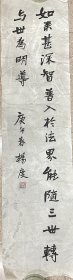 如来甚深智普入於法界能随三世轉
与世為明導
庚午春楊度